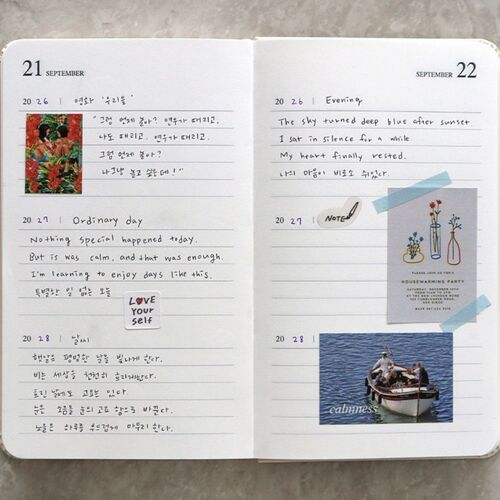 21 SEPTEMBER
20 26 | 영화 '우리들'
"그럼 언제 놀아? 연우가 때리고,
나도 때리고. 연우가 때리고.
그럼 언제 놀아?
나 그냥 놀고 싶은데!"
20 27 | Ordinary day
Nothing special happened today.
But is was calm, and that was enough.
I'm learning to enjoy days like this.
특별한 일 없는 오늘
LOVE
Your
self
20 28 | 날씨
햇살은 평범한 날을 빛나게 한다.
비는 세상을 천천히 흘러가게한다.
흐린 날에도 고요는 있다
눈은 소음을 눈의 고요함으로 바꾼다.
노을은 하루를 부드럽게 마무리 한다.
SEPTEMBER 22
20 26 | Evening
The sky turned deep blue after sunset
I sat in silence for a while.
My heart finally rested.
나의 마음이 비로소 쉬었다.
20 27 |
NOTE
PLEASE JOIN US FOR A
HOUSEWARMING PARTY
SATURDAY, DECEMBER 10TH
AT THE NEW JACKSON HOME
SAN DIEGO
20 28
calmness